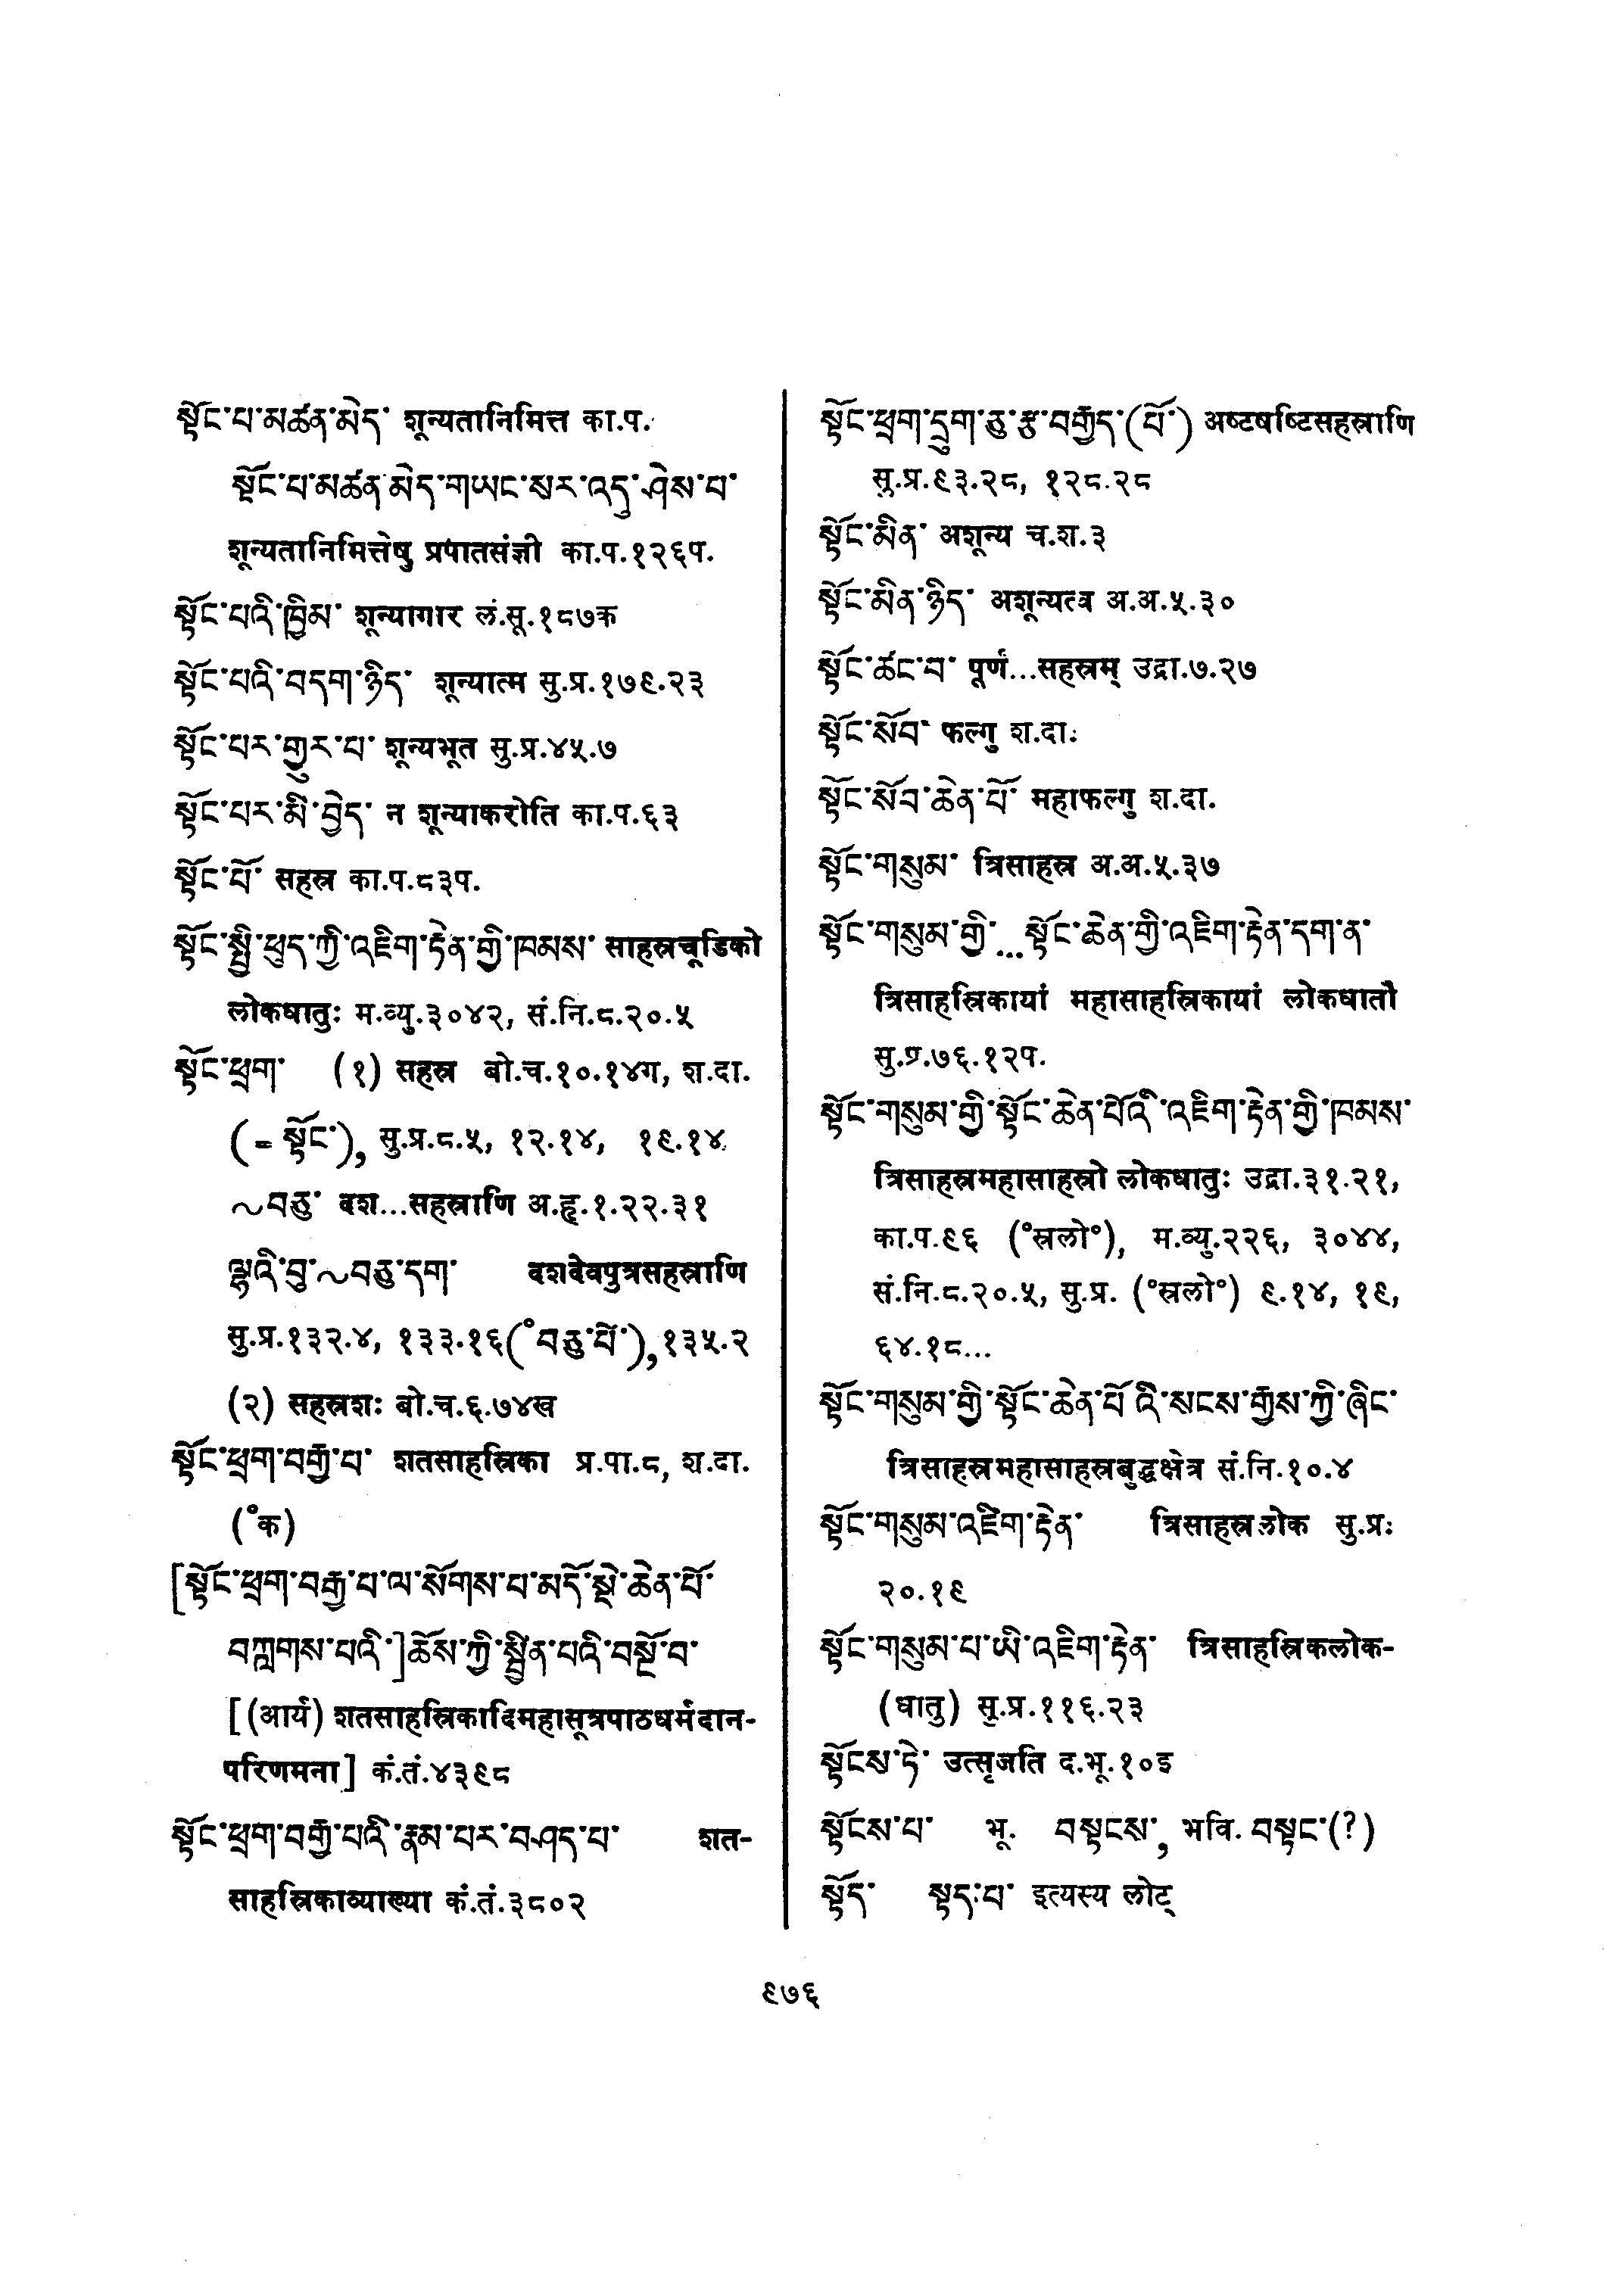 སྟོང་པ་མཚན་མེད་ शून्यतानिमित्त का.प.
སྟོང་པ་མཚན་མེད་གཡང་སར་འདུ་ཤེས་པ་
शून्यतानिमित्तेषु प्रपातसंज्ञी का.प.१२६प.
སྟོང་པའི་ཁྱིམ་ शून्यागार लं.सू.१८७क
སྟོང་པའི་བདག་ཉིད་ शून्यात्म सु.प्र.१७९.२३
སྟོང་པར་གྱུར་པ་ शून्यभूत सु.प्र.४५.७
སྟོང་པར་མི་བྱེད་ न शून्याकरोति का.प.६३
སྟོང་པོ་ सहस्र का.प.८३प.
སྟོང་སྤྱི་ཕུད་ཀྱི་འཇིག་རྟེན་གྱི་ཁམས་ साहस्रचूडिको
लोकधातुः म.व्यु.३०४२, सं.नि.८.२०.५
སྟོང་ཕྲག་ (१) सहस्र बो.च.१०.१४ग, श.दा.
(= སྟོང་), सु.प्र.८.५, १२.१४, १९.१४
~བཅུ་ दश...सहस्राणि अ.हृ.१.२२.३१
ལྷའི་བུ་~བཅུ་དག་ दशदेवपुत्रसहस्राणि
सु.प्र.१३२.४, १३३.१६(°བཅུ་པོ་), १३५.२
(२) सहस्रशः बो.च.६.७४ख
སྟོང་ཕྲག་བརྒྱ་པ་ शतसाहस्रिका प्र.पा.८, श.दा.
(°क)
[སྟོང་ཕྲག་བརྒྱ་པ་ལ་སོགས་པ་མདོ་སྡེ་ཆེན་པོ་
བཀླགས་པའི་]ཆོས་ཀྱི་སྦྱིན་པའི་བསྔོ་བ་
[(आर्य) शतसाहस्रिकादिमहासूत्रपाठधर्मदान-
परिणमना] कं.तं.४३९८
སྟོང་ཕྲག་བརྒྱ་པའི་རྣམ་པར་བཤད་པ་ शत-
साहस्रिकाव्याख्या कं.तं.३८०२
སྟོང་ཕྲག་དྲུག་ཅུ་རྩ་བརྒྱད་(པོ་) अष्टषष्टिसहस्राणि
सु.प्र.९३.२८, १२८.२८
སྟོང་མིན་ अशून्य च.श.३
སྟོང་མིན་ཉིད་ अशून्यत्व अ.अ.५.३०
སྟོང་ཚང་བ་ पूर्णं...सहस्रम् उद्रा.७.२७
སྟོང་སོབ་ फल्गु श.दा.
སྟོང་སོབ་ཆེན་པོ་ महाफल्गु श.दा.
སྟོང་གསུམ་ त्रिसाहस्र अ.अ.५.३७
སྟོང་གསུམ་གྱི་...སྟོང་ཆེན་གྱི་འཇིག་རྟེན་དག་ན་
त्रिसाहस्रिकायां महासाहस्रिकायां लोकधातौ
सु.प्र.७६.१२प.
སྟོང་གསུམ་གྱི་སྟོང་ཆེན་པོའི་འཇིག་རྟེན་གྱི་ཁམས་
त्रिसाहस्रमहासाहस्रो लोकधातुः उद्रा.३१.२१,
का.प.९६ (°स्रलो°), म.व्यु.२२६, ३०४४,
सं.नि.८.२०.५, सु.प्र. (°स्रलो°) ९.१४, १९,
६४.१८...
སྟོང་གསུམ་གྱི་སྟོང་ཆེན་པོའི་སངས་རྒྱས་ཀྱི་ཞིང་
त्रिसाहस्रमहासाहस्रबुद्धक्षेत्र सं.नि.१०.४
སྟོང་གསུམ་འཇིག་རྟེན་ त्रिसाहस्रलोक सु.प्र.
२०.१९
སྟོང་གསུམ་པ་ཡི་འཇིག་རྟེན་ त्रिसाहस्रिकलोक-
(धातु) सु.प्र.११६.२३
སྟོངས་ཏེ་ उत्सृजति द.भू.१०इ
སྟོངས་པ་ भू. བསྟངས་, भवि. བསྟང་(?)
སྟོད་ སྟད་པ་ इत्यस्य लोट्
९७६